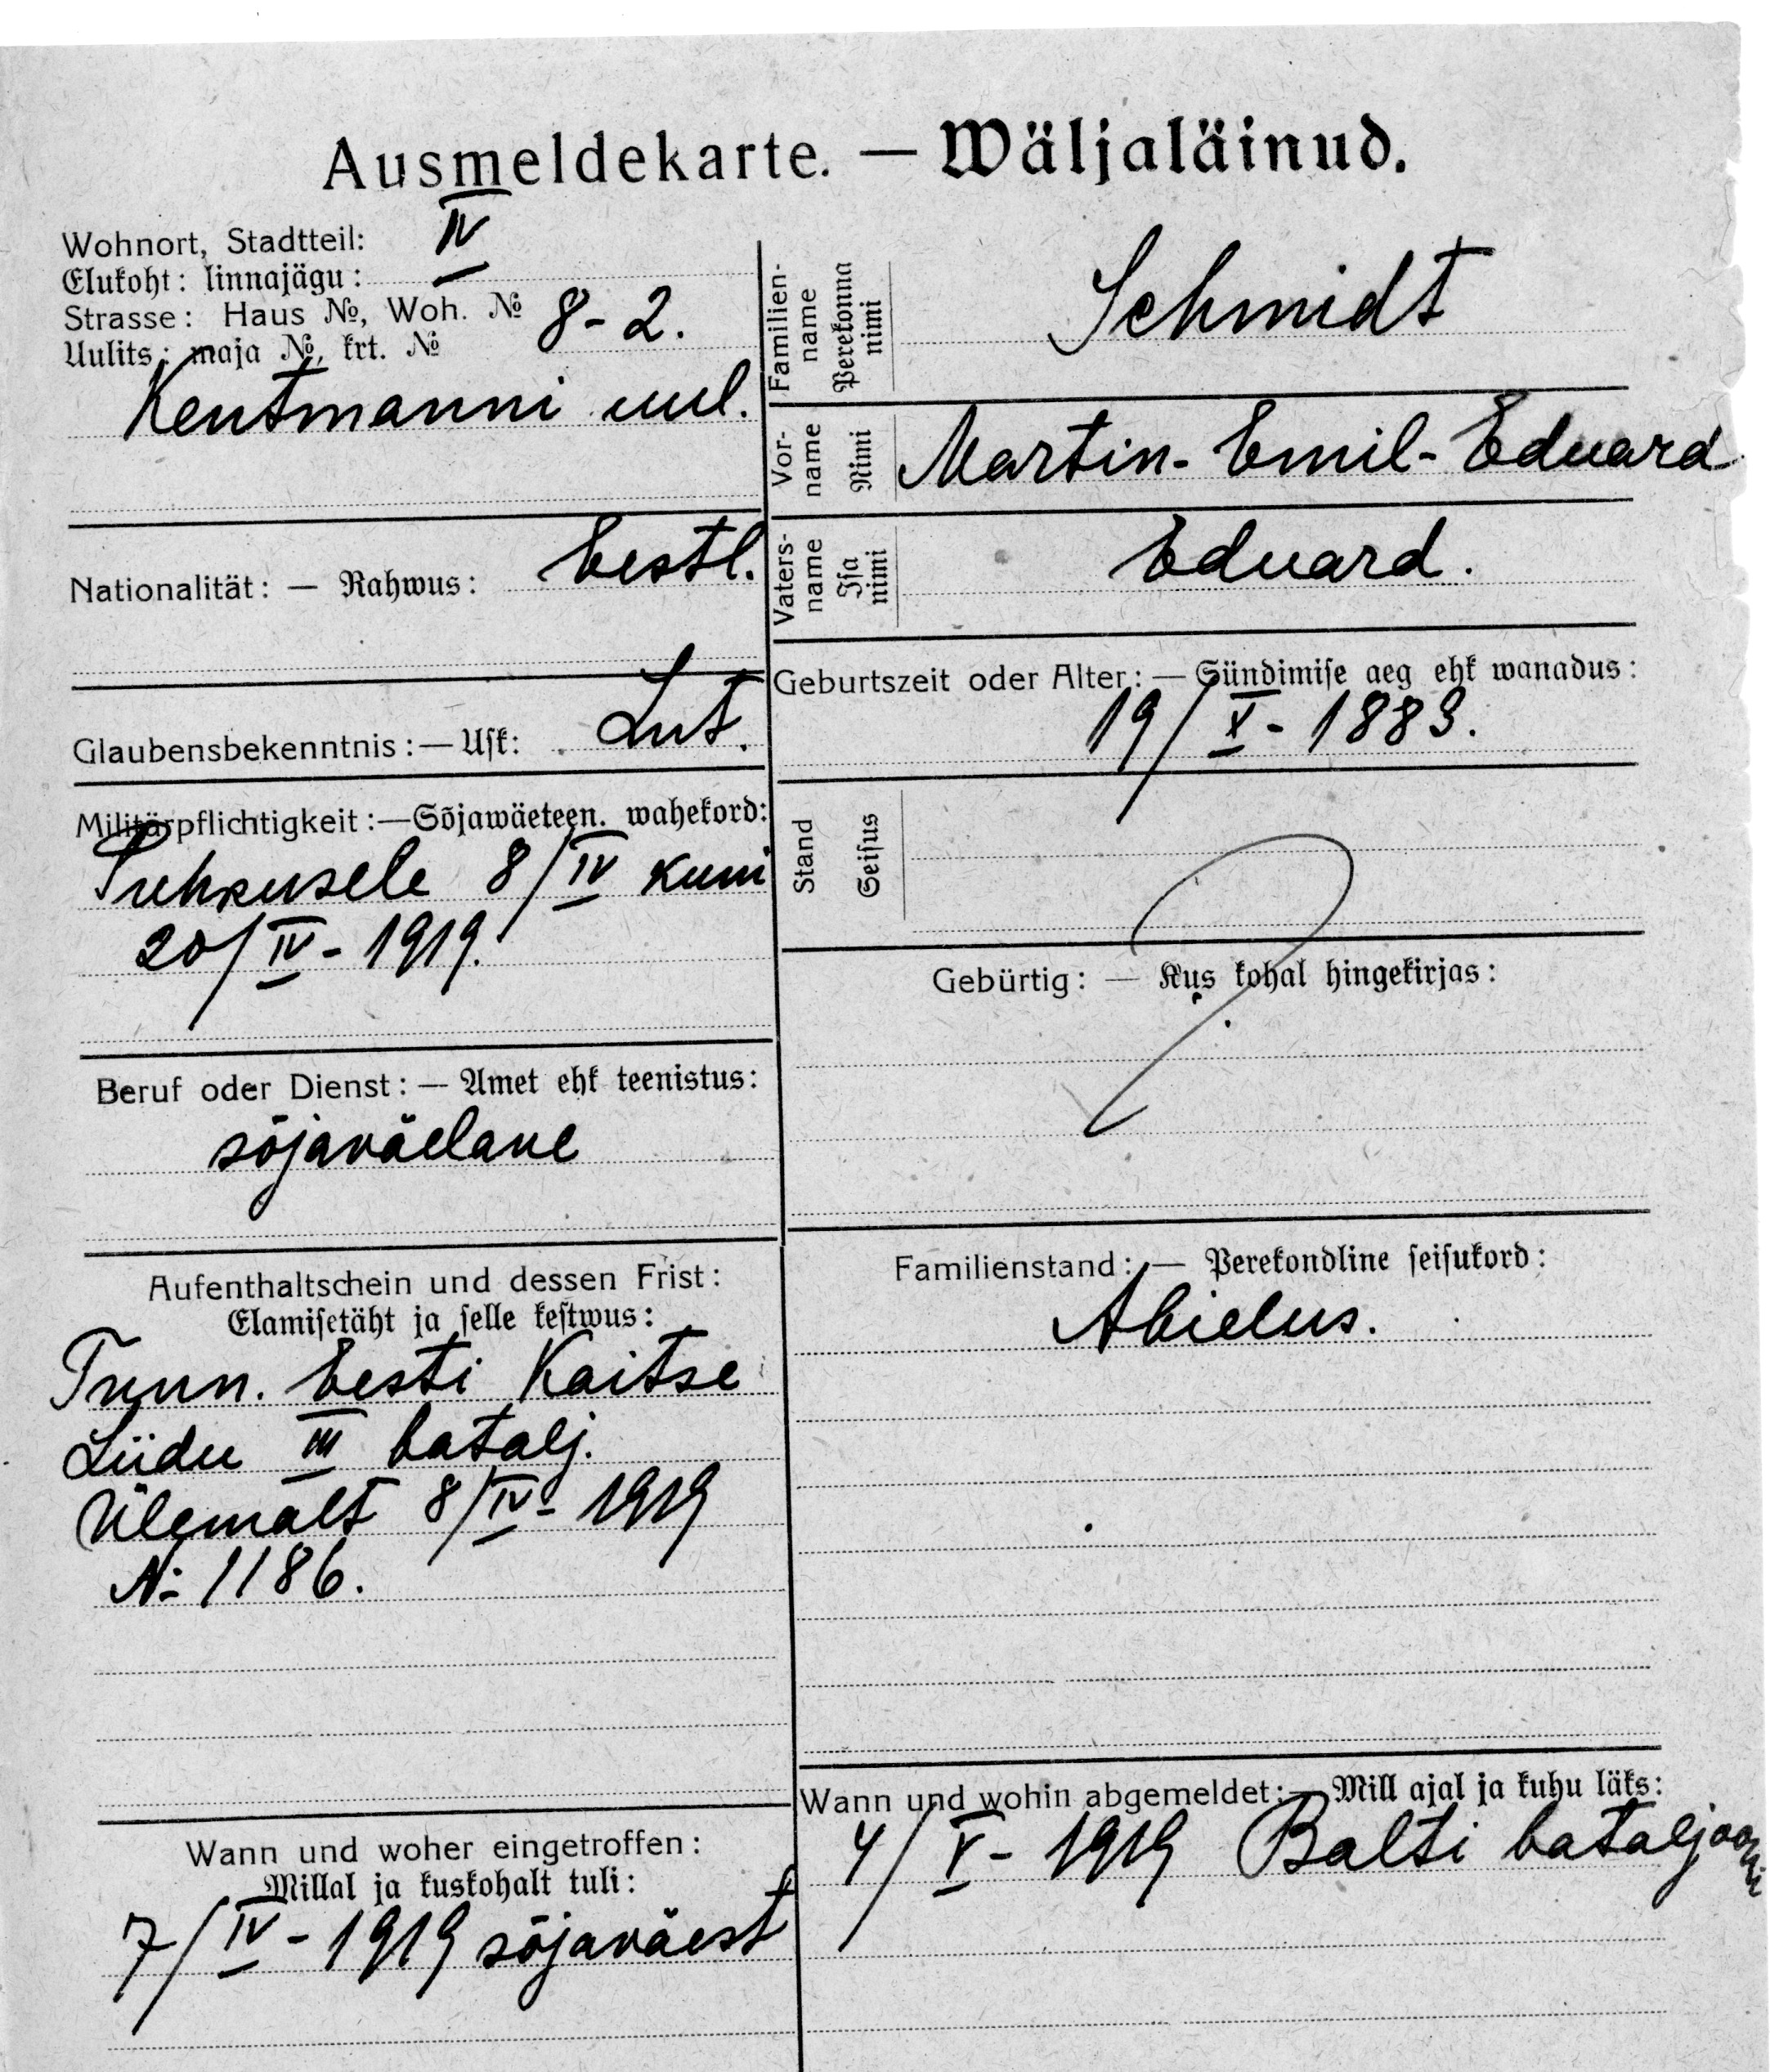 Ausmeldekarte. — Wäljaläinud.
Wohnort, Stadtteil: IV
Elukoht: linnajägu:
Strasse: Haus №, Woh. № 8-2.
Uulits: maja №, krt. №
Kentmanni uul.
Nationalität: — Rahwus: Eestl.
Glaubensbekenntnis: — Usk: Lut.
Militärpflichtigkeit: — Sõjawäeteen. wahekord:
Puhkusele 8/IV kuni
20/IV - 1919.
Beruf oder Dienst: — Amet ehk teenistus:
sõjaväelane
Aufenthaltschein und dessen Frist:
Elamisetäht ja selle kestwus:
Tunn. Eesti Kaitse
Liidu III batalj.
Ülemalt 8/IV - 1919
№ 1186.
Wann und woher eingetroffen:
Millal ja kuskohalt tuli:
7/IV - 1919 sõjaväest
Familien-
name
Perekonna
nimi
Schmidt
Vor-
name
Nimi
Martin-Emil-Eduard
Vaters-
name
Isa
nimi
Eduard.
Geburtszeit oder Alter: — Sündimise aeg ehk wanadus:
19/X - 1883.
Stand
Seisus
Gebürtig: — Kus kohal hingekirjas:
Familienstand: — Perekondline seisukord:
Abielus.
Wann und wohin abgemeldet: — Mill ajal ja kuhu läks:
4/V - 1919 Balti bataljooni